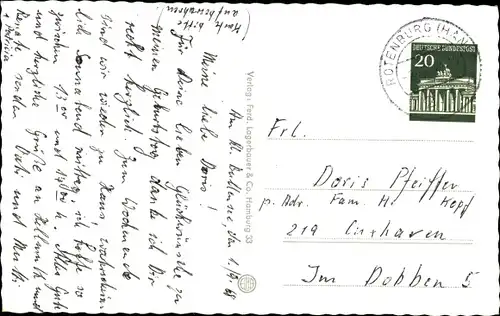 (Marke bitte
aufbewahren!)
Am Kl. Bullensee, den 1/9. 68
Meine liebe Doris!
Für Deine lieben Glückwünsche zu
meinem Geburtstag danke ich Dir
recht herzlich. Zum Wochenende
sind wir wieder zu Haus, wahrschein-
lich Sonnabend mittag, ich hoffe so
zwischen 13 00 und 14 00 h. Alles Gute
und herzliche Grüße an Hellmuth und
Renate senden Vati und Mutti.
Verlag: Ferd. Lagerbauer & Co., Hamburg 33
ROTENBURG (HAN)
DEUTSCHE BUNDESPOST
20
Frl.
Doris Pfeiffer
p. Adr. Fam. H. Kopf
219 Cuxhaven
Im Dobben 5